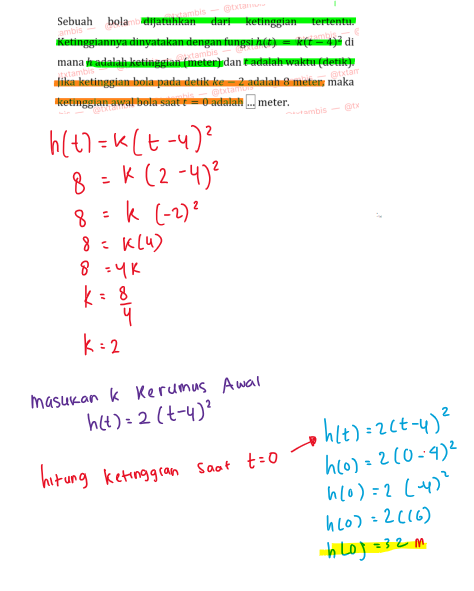 Sebuah bola dijatuhkan dari ketinggian tertentu.
Ketinggiannya dinyatakan dengan fungsi h(t) = k(t − 4)² di
mana h adalah ketinggian (meter) dan t adalah waktu (detik).
Jika ketinggian bola pada detik ke − 2 adalah 8 meter, maka
ketinggian awal bola saat t = 0 adalah ... meter.
h(t) = k(t-4)²
8 = k(2-4)²
8 = k (-2)²
8 = k(4)
8 = 4k
k = 8/4
k = 2
Masukan k kerumus Awal
h(t) = 2(t-4)²
hitung ketinggian saat t=0
h(t) = 2(t-4)²
h(0) = 2(0-4)²
h(0) = 2 (-4)²
h(0) = 2(16)
h(0) = 32 m